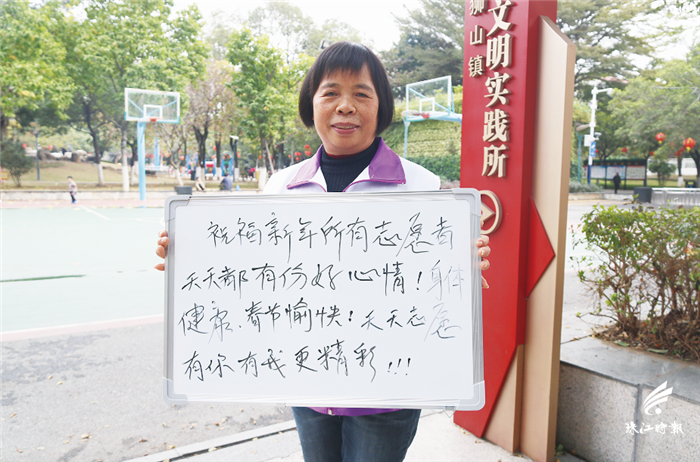 狮山镇
文明实践所
祝福新年所有志愿者
天天都有份好心情！身体
健康、春节愉快！天天志愿
有你有我更精彩!!!
珠江时报